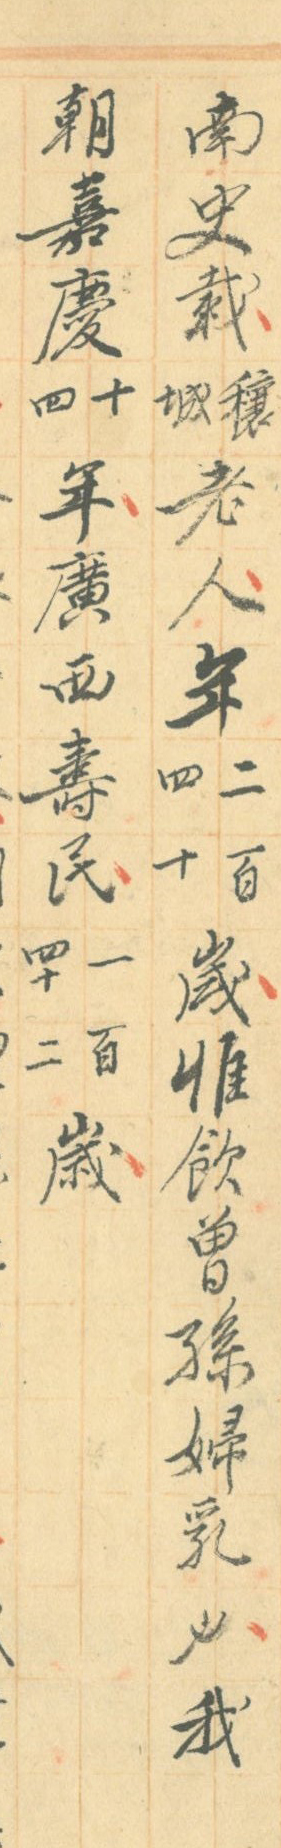 南史載穰城老人年二百四十歲惟飲曾孫婦乳也我
朝嘉慶十四年廣西壽民一百四十二歲